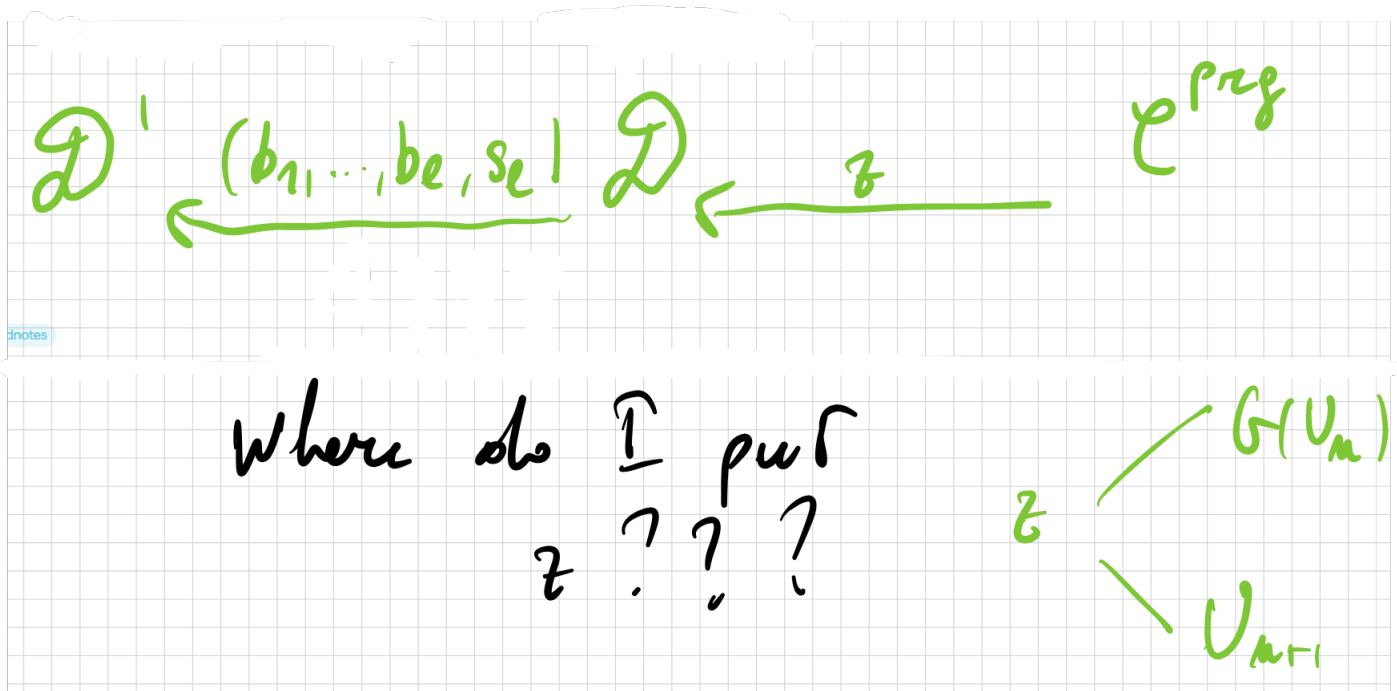 D' (b₁,...,bₑ,sₑ) D z C^prg
dnotes
Where do I put
z ? ? ?
z G(Uₙ)
Uₙ₊₁